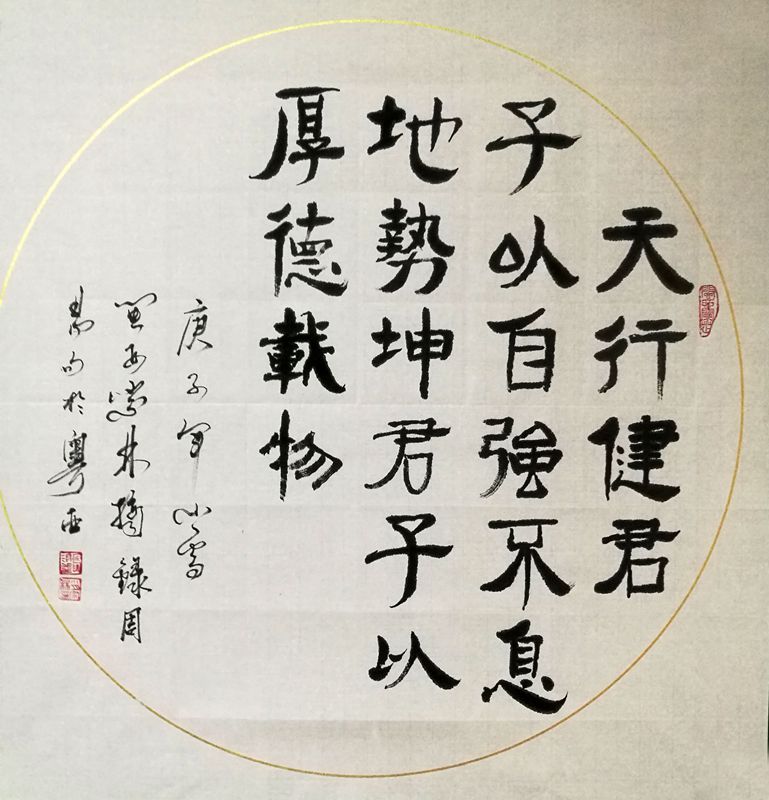 天行健君
子以自強不息
地勢坤君子以
厚德載物
庚子年小雪
林摘錄周
易句於粵西